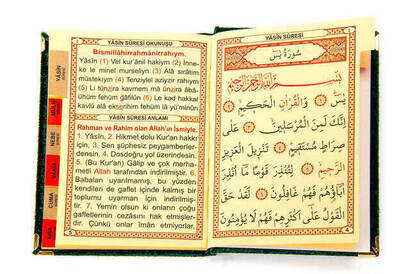 YÂSİN SÛRESİ OKUNUŞU
Bismillâhirrahmânirrahıym.
Yâsîn (1) Vel kur'ânil hakiym (2) İnne-
ke le minel murseliyn (3) Alâ sırâtım
müstekiym (4) Tenziylel aziyzir rahıym
(5) Li tünzira kavmem mâ ünzira âbâ-
ühüm fehüm ğâfilûn (6) Le kad hakkal
kavlü alâ ekserihim fehüm lâ yü'minûn
YÂSİN SÛRESİ ANLAMI
Rahman ve Rahim olan Allah'ın İsmiyle.
1. Yâsîn, 2. Hikmet dolu Kur'an hakkı
için, 3. Sen şüphesiz peygamberler-
densin. 4. Dosdoğru yol üzerindesin.
5. (Bu Kur'an) Gâlip ve çok merha-
metli Allah tarafından indirilmiştir. 6.
Babaları uyarılmamış, bu yüzden
kendileri de gaflet içinde kalmış bir
toplumu uyarman için indirilmiş-
tir. 7. Yemin olsun ki onların çoğu
gafletlerinin cezasını hak etmişler-
dir. Çünkü onlar îman etmiyorlar.
YÂSİN
NEBE
CUMA
YÂSİN SÛRESİ
سُورَةُ يٰسٓ
بِسْمِ اللّٰهِ الرَّحْمٰنِ الرَّحِيمِ
يٰسٓ ﴿١﴾ وَالْقُرْاٰنِ الْحَكِيمِ ﴿٢﴾
اِنَّكَ لَمِنَ الْمُرْسَلِينَ ﴿٣﴾ عَلٰى
صِرَاطٍ مُسْتَقِيمٍ ﴿٤﴾ تَنْزِيلَ الْعَزِيزِ
الرَّحِيمِ ﴿٥﴾ لِتُنْذِرَ قَوْمًا مَٓا اُنْذِرَ
اٰبَٓاؤُهُمْ فَهُمْ غَافِلُونَ ﴿٦﴾ لَقَدْ حَقَّ
الْقَوْلُ عَلٰٓى اَكْثَرِهِمْ فَهُمْ لَا يُؤْمِنُونَ